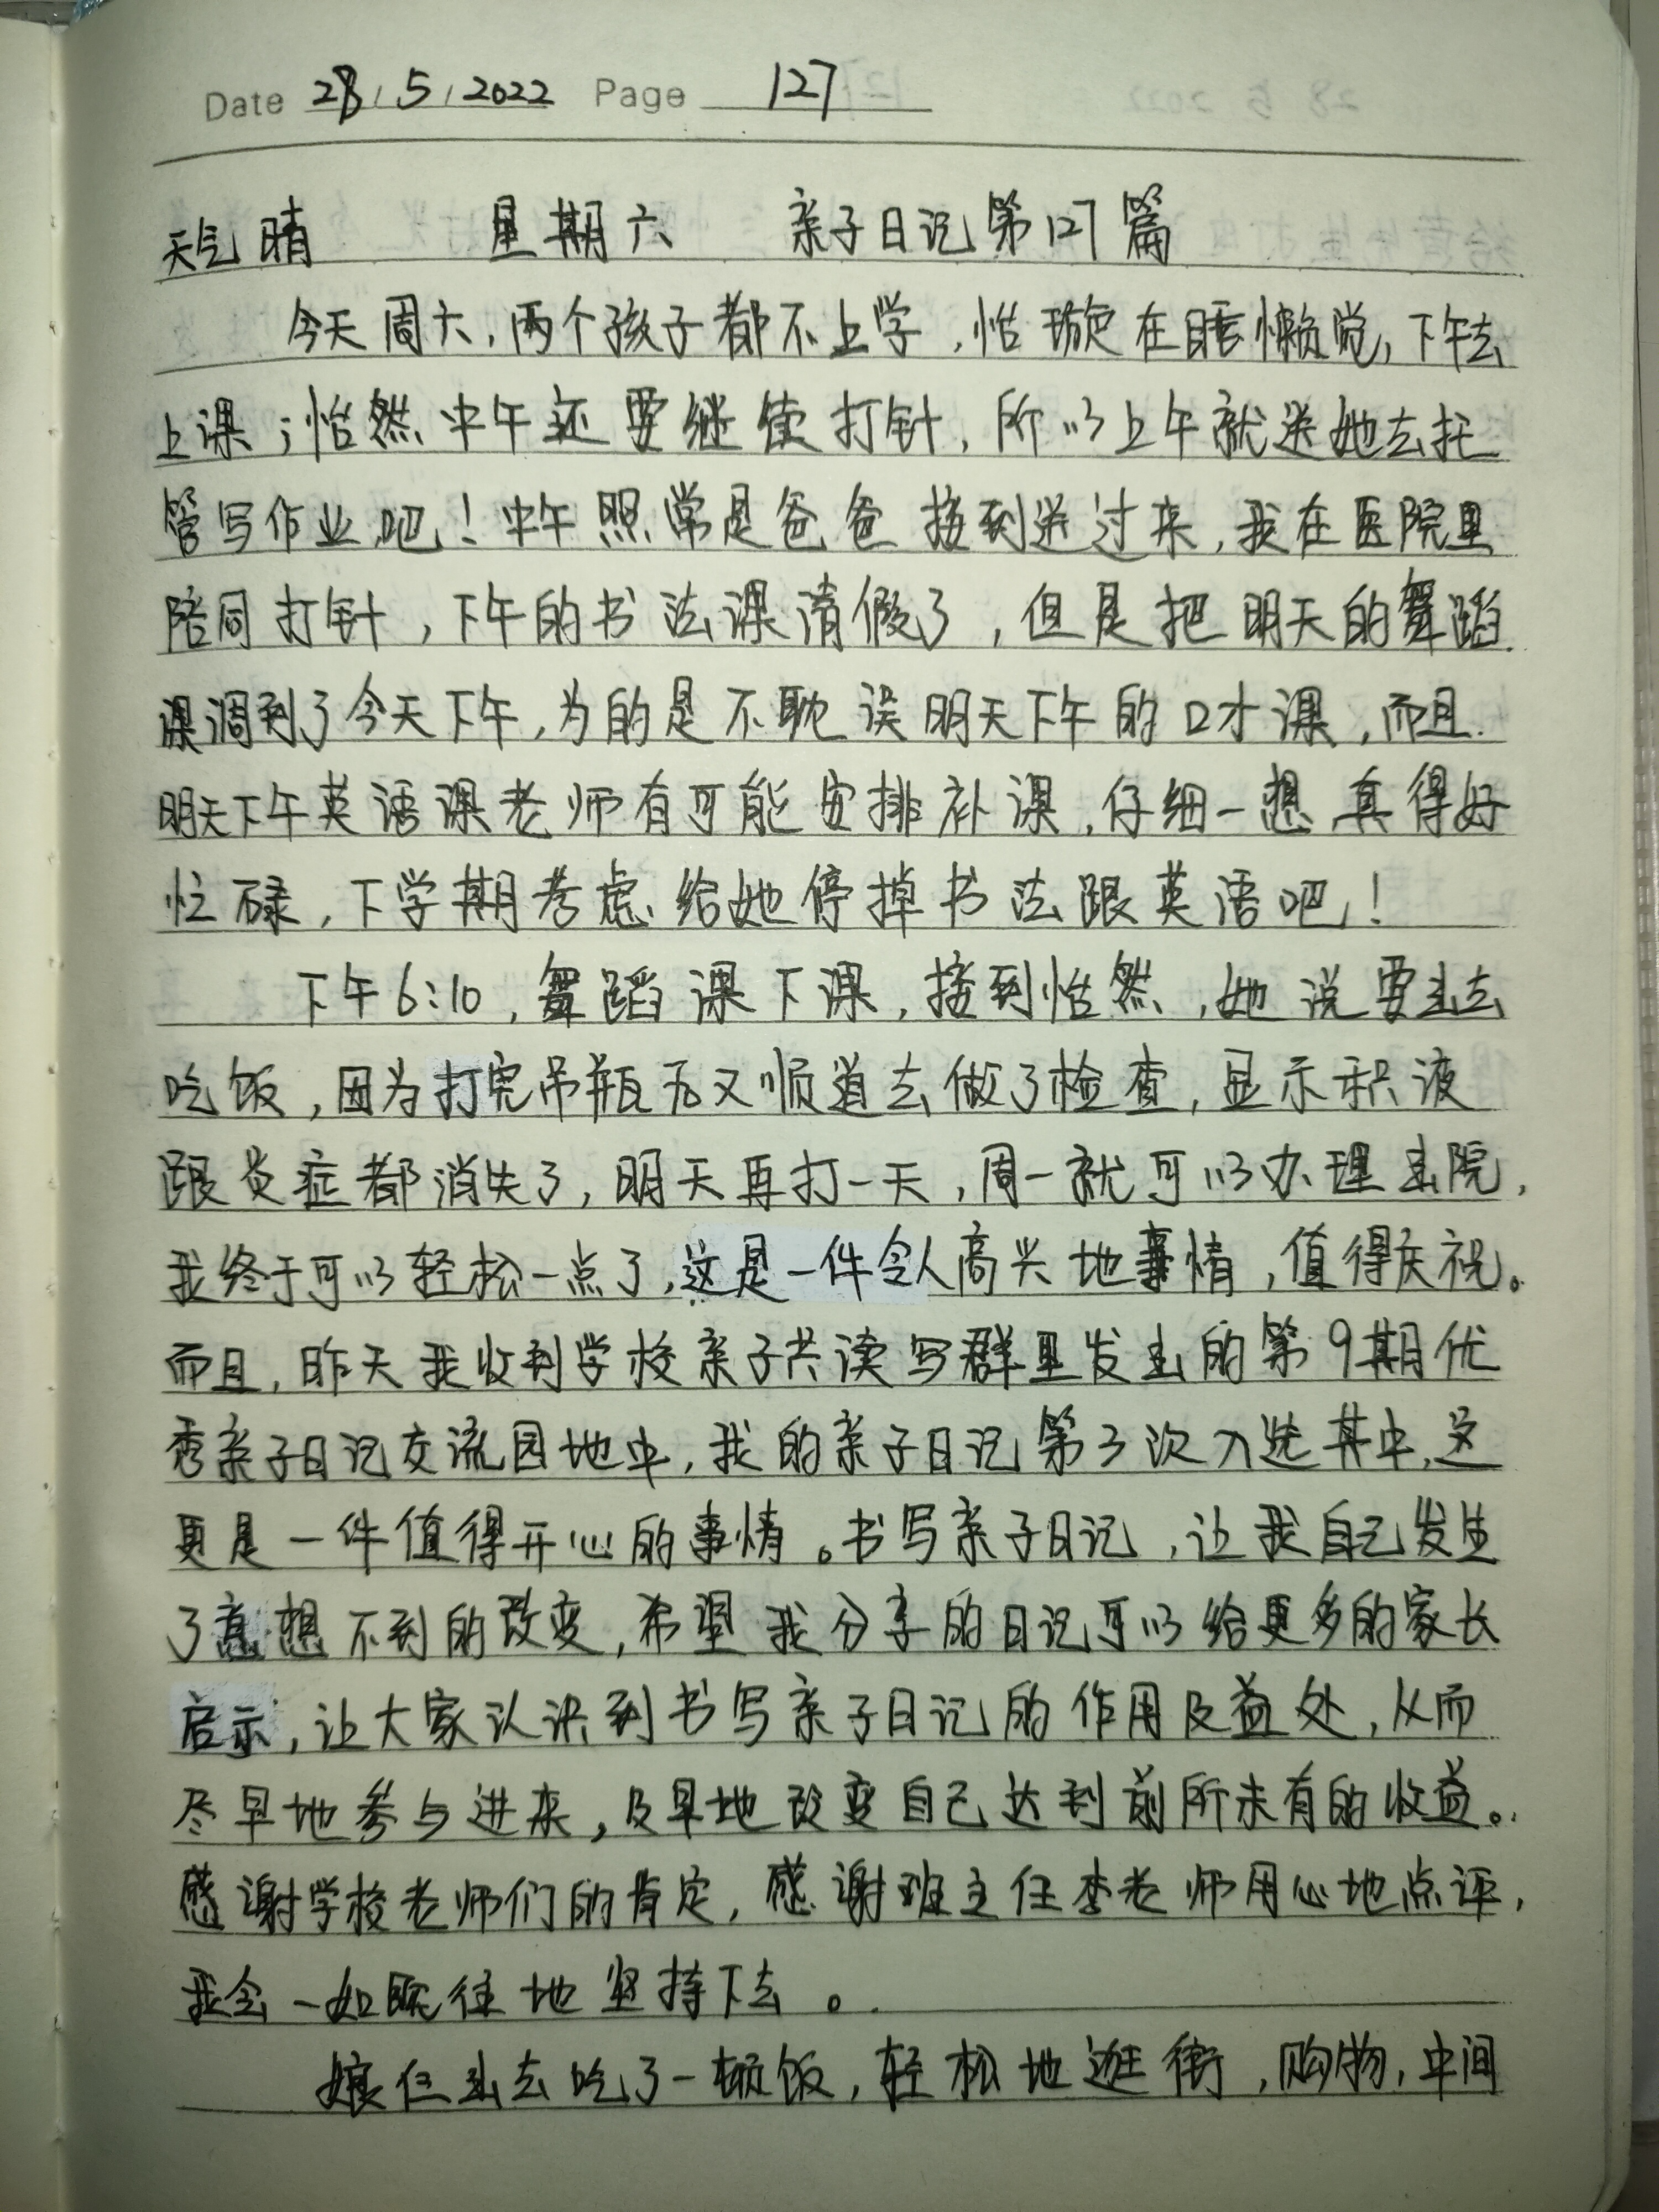 Date 28 / 5 / 2022 Page 127
天气 晴 星期六 亲子日记第127篇
今天周六，两个孩子都不上学，怡璇在睡懒觉，下午去
上课；怡然中午还要继续打针，所以上午就送她去托
管写作业吧！中午照常是爸爸接到送过来，我在医院里
陪同打针，下午的书法课请假了，但是把明天的舞蹈
课调到了今天下午，为的是不耽误明天下午的口才课，而且
明天下午英语课老师有可能安排补课，仔细一想真得好
忙碌，下学期考虑给她停掉书法跟英语吧！
下午6:10，舞蹈课下课，接到怡然，她说要出去
吃饭，因为打完吊瓶后又顺道去做了检查，显示积液
跟炎症都消失了，明天再打一天，周一就可以办理出院，
我终于可以轻松一点了，这是一件令人高兴地事情，值得庆祝。
而且，昨天我收到学校亲子共读写群里发出的第9期优
秀亲子日记交流园地中，我的亲子日记第3次入选其中，这
更是一件值得开心的事情。书写亲子日记，让我自己发生
了意想不到的改变，希望我分享的日记可以给更多的家长
启示，让大家认识到书写亲子日记的作用及益处，从而
尽早地参与进来，及早地改变自己达到前所未有的收益。
感谢学校老师们的肯定，感谢班主任李老师用心地点评，
我会一如既往地坚持下去。
娘仨出去吃了一顿饭，轻松地逛街，购物，中间